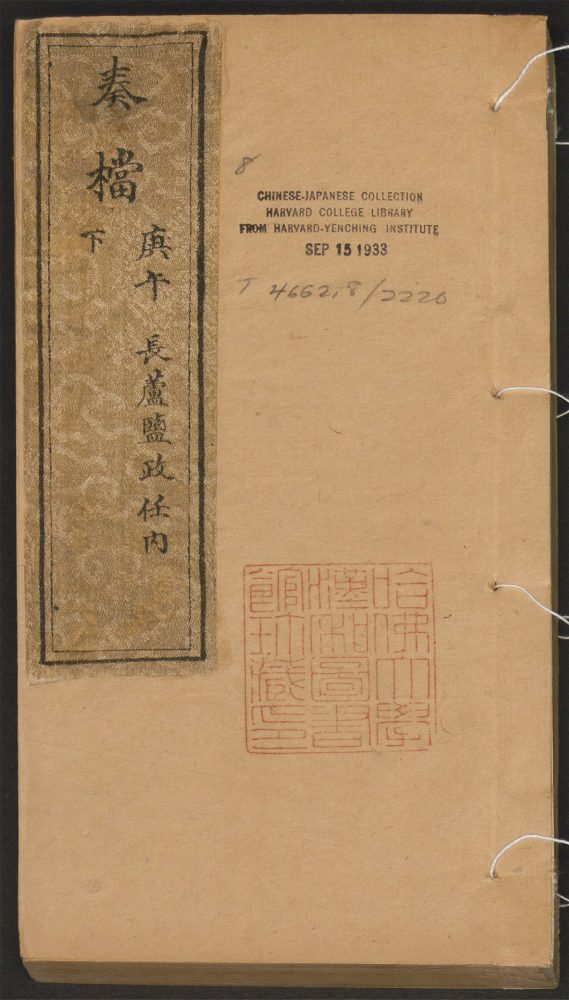 奏檔
下
庚午 長蘆鹽政任内
8
CHINESE-JAPANESE COLLECTION
HARVARD COLLEGE LIBRARY
FROM HARVARD-YENCHING INSTITUTE
SEP 15 1933
T 4662.8/2220
哈佛大學
漢和圖書
館珍藏印